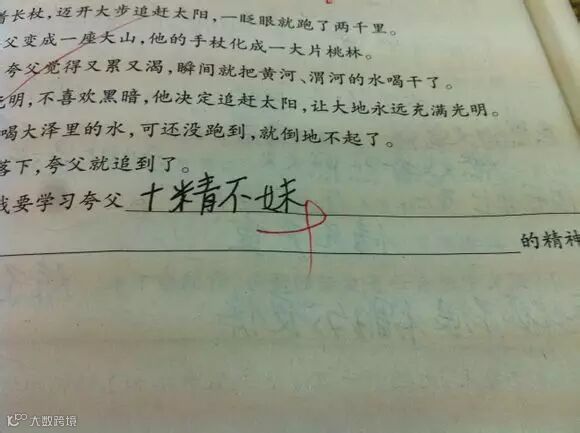 着长杖,迈开大步追赶太阳,一眨眼就跑了两千里。
父变成一座大山,他的手杖化成一大片桃林。
夸父觉得又累又渴,瞬间就把黄河、渭河的水喝干了。
光明,不喜欢黑暗,他决定追赶太阳,让大地永远充满光明。
喝大泽里的水,可还没跑到,就倒地不起了。
落下,夸父就追到了。
我要学习夸父十精不妹
的精神
大数跨境